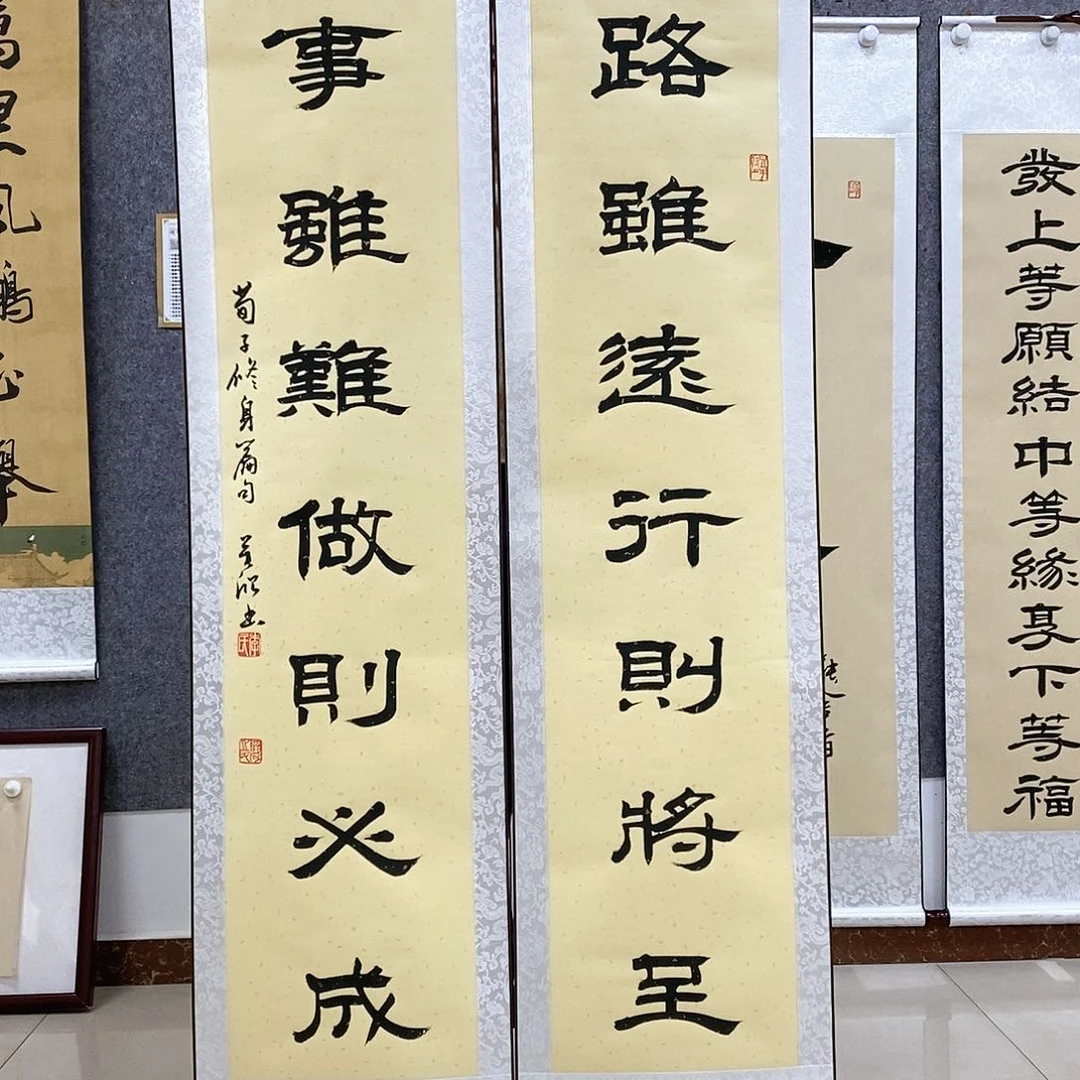 發上等願結中等緣享下等福
路雖遠行則將至
事雖難做則必成
荀子修身篇句
萬里風鵬正舉